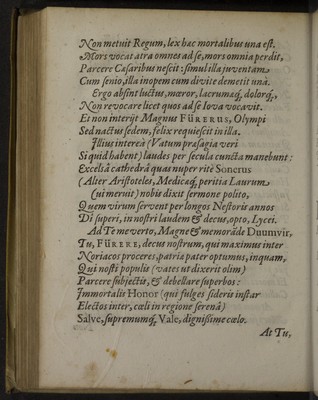 Non metuit Regum, lex hac mortalibus una est.
Mors vocat atra omnes ad se, mors omnia perdit,
Parcere Cæsaribus nescit: simul illa juventam
Cum senio, illa inopem cum divite demetit unâ.
Ergo absint luctus, mœror, lacrumæq́, dolorq́,
Non revocare licet quos ad se Iova vocavit.
Et non interijt Magnus FÜRERUS, Olympi
Sed nactus sedem, felix requiescit in illa.
Illius intereà (Vatum præsagia veri
Si quid habent) laudes per secula cuncta manebunt:
Excelsâ cathedrâ quas nuper ritè Sonerus
(Alter Aristoteles, Medicæq́, peritia Laurum
Cui meruit) nobis dixit sermone polito,
Quem virum servent per longos Nestoris annos
Di superi, in nostri laudem & decus, opto, Lycei.
Ad Te me verto, Magne & memorãde Duumvir,
Tu, FÜRERE, decus nostrum, qui maximus inter
Noriacos proceres, patria pater optumus, inquam,
Qui nosti populis (vates ut dixerit olim)
Parcere subjectis, & debellare superbos:
Immortalis Honor (qui fulges sideris instar
Electos inter, cœli in regione serenâ)
Salve, supremumq́, Vale, dignißime cœlo.
At Tu,